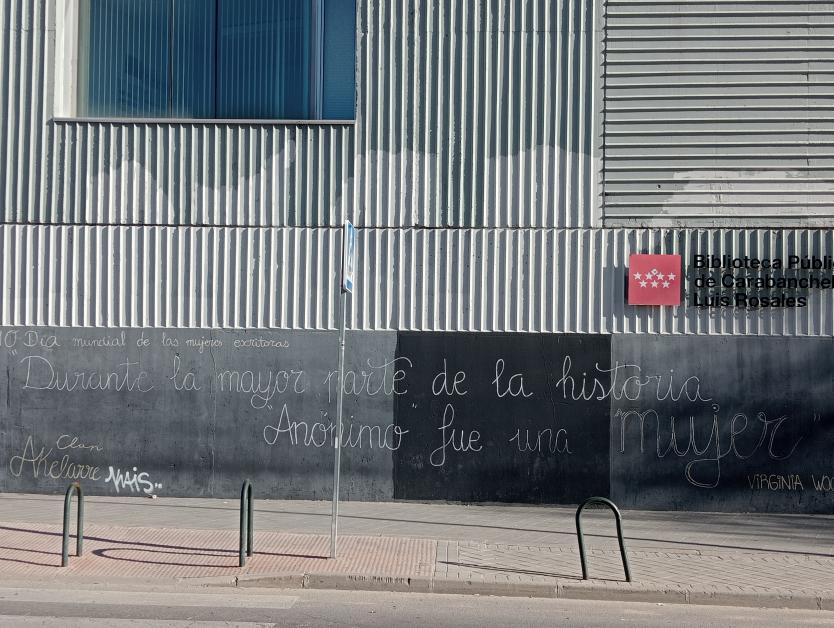 Biblioteca Públi
de Carabanchel
Luis Rosales
10 Día mundial de las mujeres escritoras
"Durante la mayor parte de la historia
"Anónimo" fue una mujer"
VIRGINIA WOO
Clan
Akelarre
MAIS..